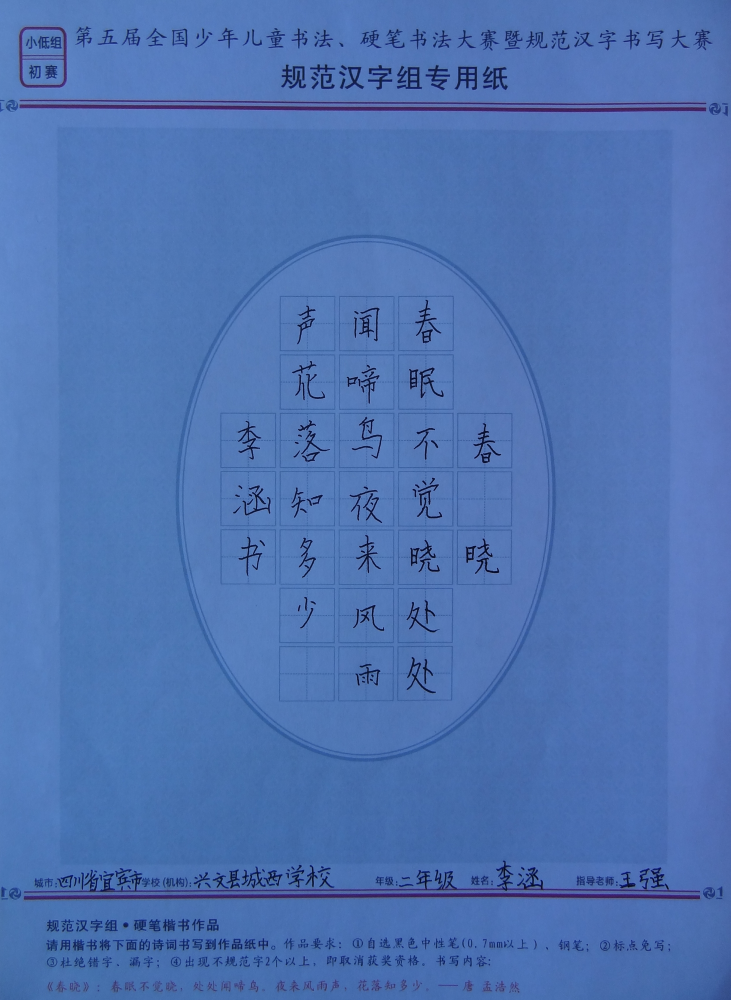 小低组
初赛
第五届全国少年儿童书法、硬笔书法大赛暨规范汉字书写大赛
规范汉字组专用纸
春晓
春眠不觉晓处处
闻啼鸟夜来风雨
声花落知多少
李涵书
城市:四川省宜宾市 学校(机构):兴文县城西学校 年级:二年级 姓名:李涵 指导老师:王强
规范汉字组•硬笔楷书作品
请用楷书将下面的诗词书写到作品纸中。作品要求:①自选黑色中性笔(0.7mm以上)、钢笔;②标点免写;
③杜绝错字、漏字;④出现不规范字2个以上,即取消获奖资格。书写内容:
《春晓》:春眠不觉晓,处处闻啼鸟。夜来风雨声,花落知多少。——唐 孟浩然